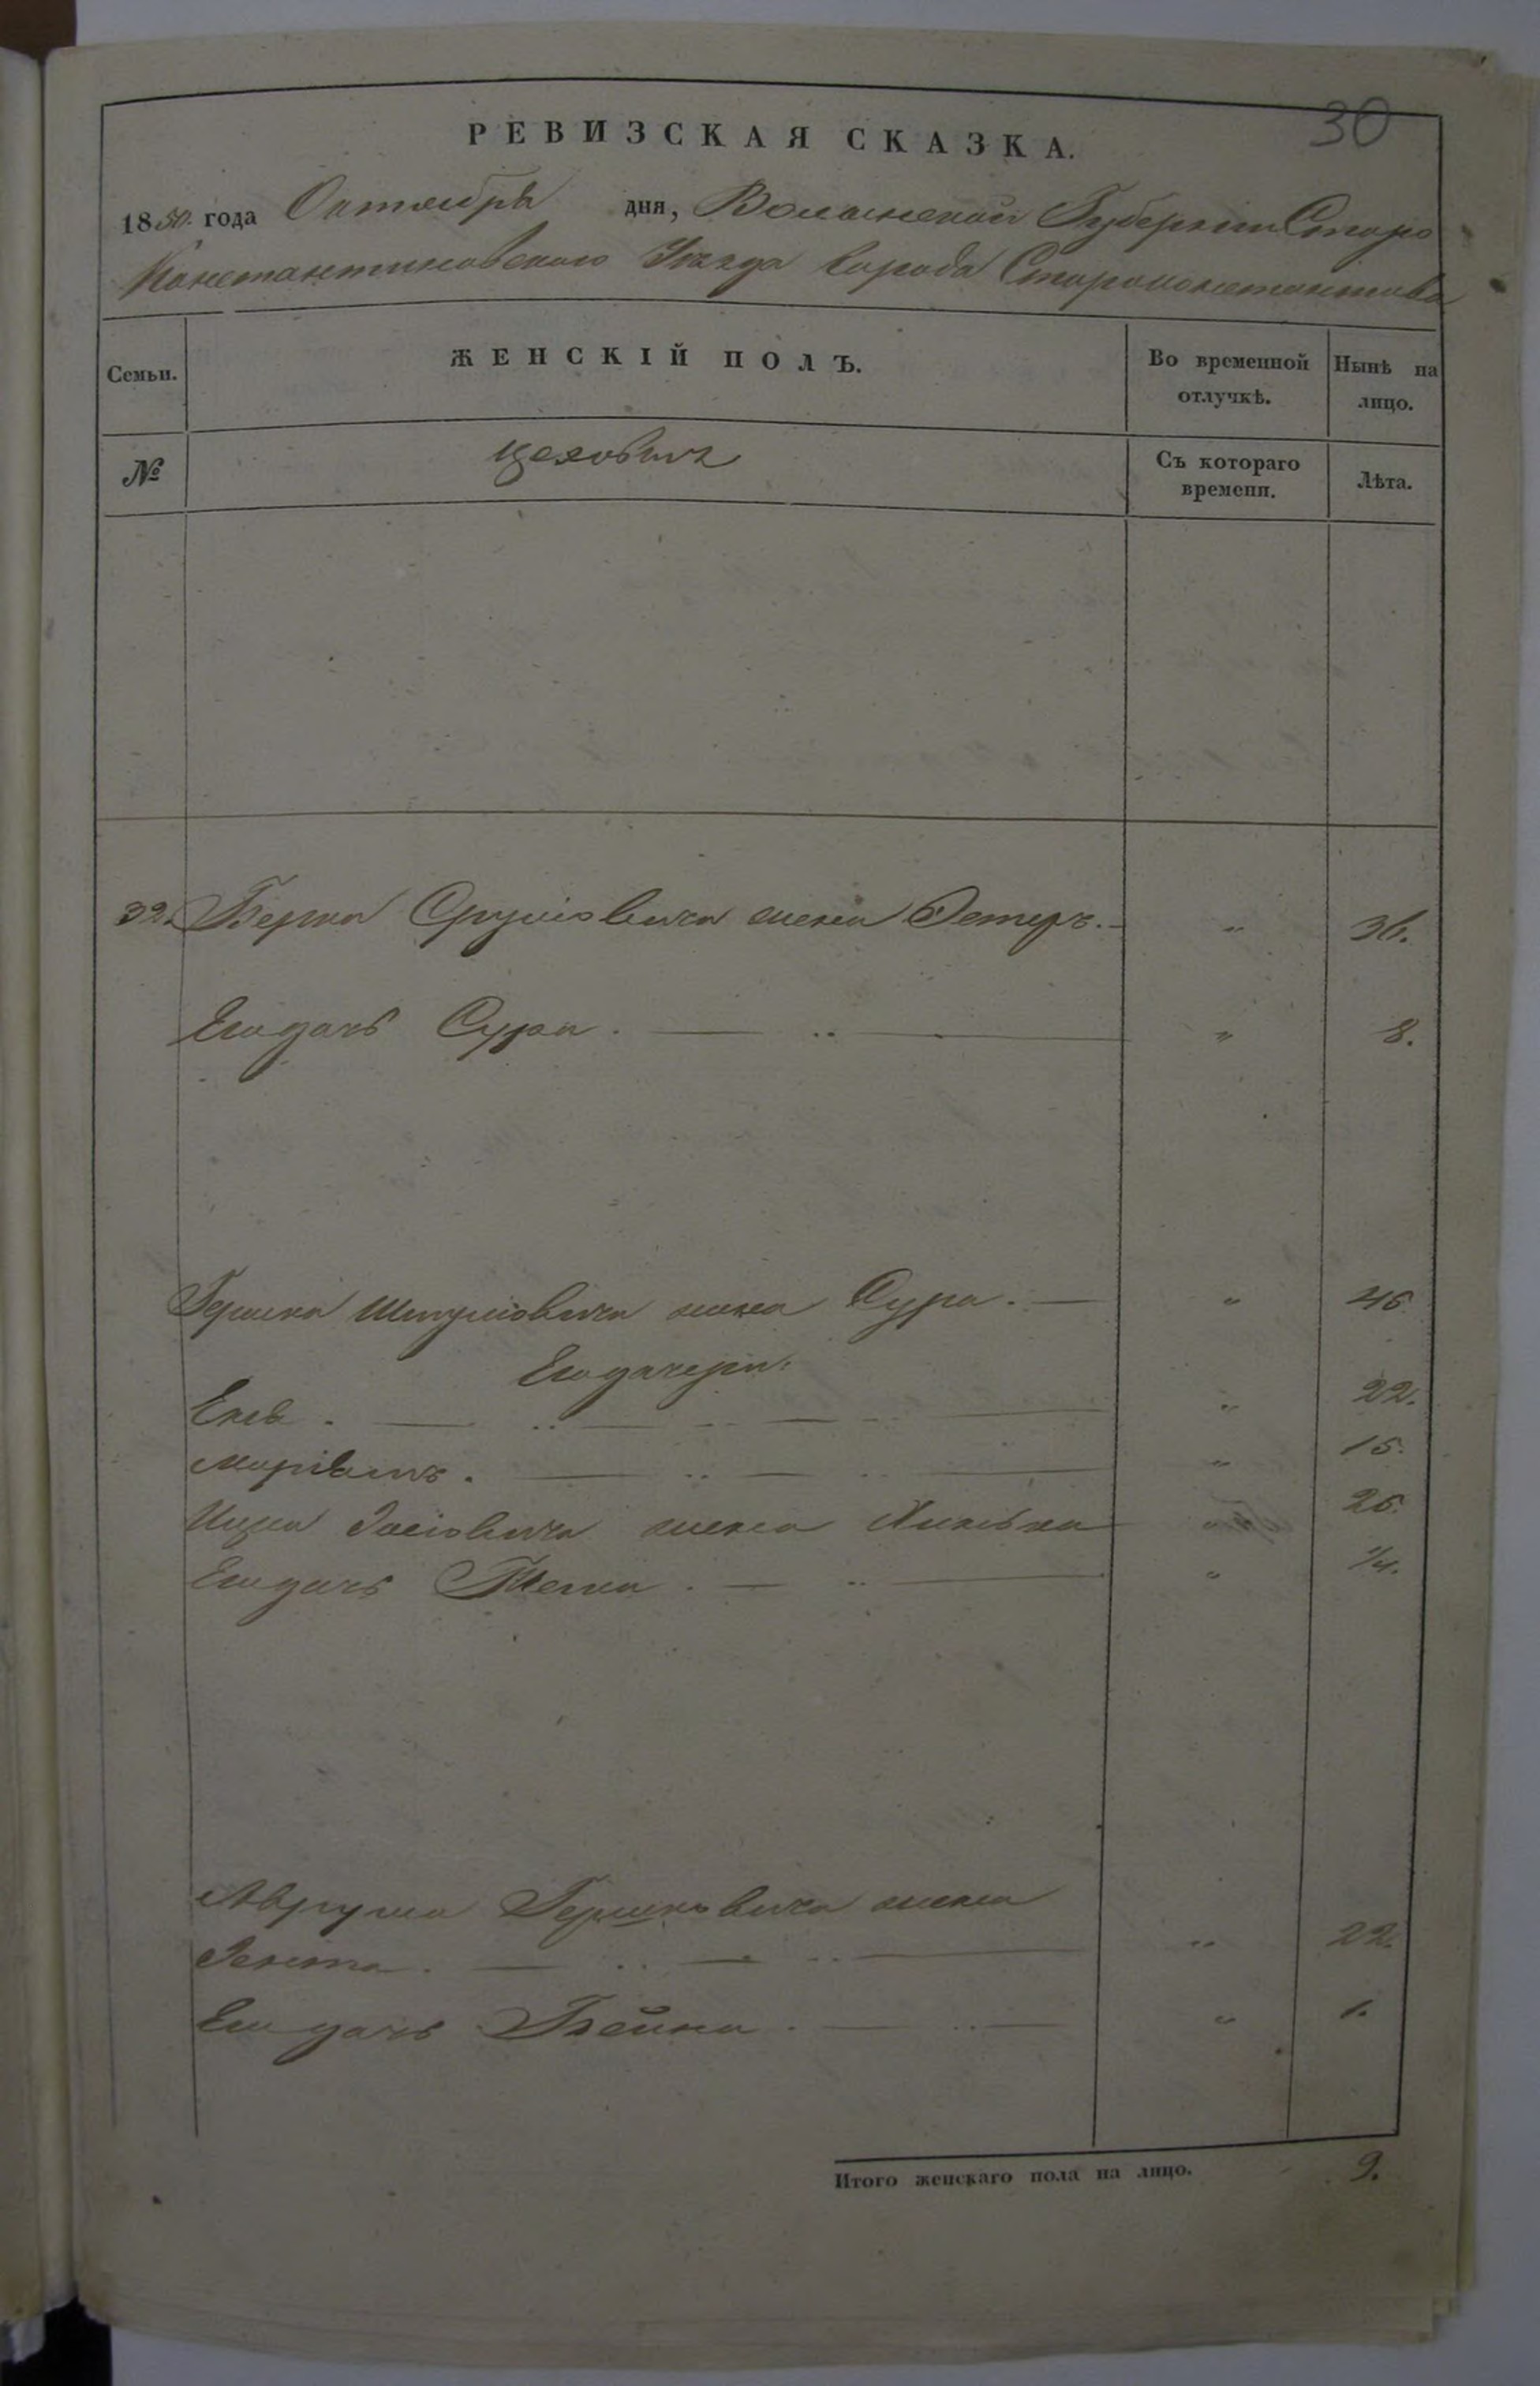 30
РЕВИЗСКАЯ СКАЗКА.
1850. года Октября дня, Волынской Губернии Старо
Константиновского Уезда города Староконстантинова
Семьи.
ЖЕНСКІЙ ПОЛЪ.
Во временной отлучкѣ.
Нынѣ на лицо.
№
цеховыхъ
Съ котораго времени.
Лѣта.
32. Берка Сруліовича жена Эстеръ. — " 36.
Его дочь Сура. — " 8.
Гершка Шмуліовича жена Сура. — " 46
Его дочери:
" 22.
Маріямъ. — " 15.
Іосіовича жена " 26.
Его дочь " 1/4.
Аврума Гершковича жена
Гента. — " 22.
Его дочь Бейла. — " 1.
Итого женскаго пола на лицо. 9.